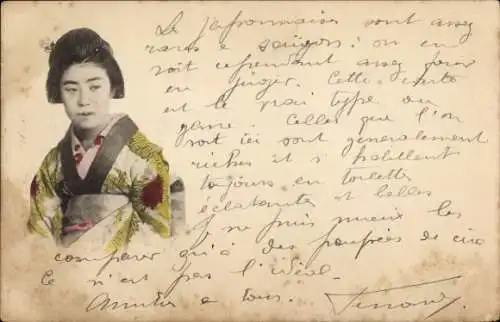 Les japonnaises sont assez
rares à Saïgon : on en
voit cependant assez pour
en juger. Cette carte
est le vrai type du
genre. Celles que l'on
voit ici sont généralement
riches et s'habillent
toujours en toilettes
éclatantes et belles
Je ne puis mieux les
comparer qu'à des poupées de cire
Ce n'est pas l'idéal.
Amitiés à tous.